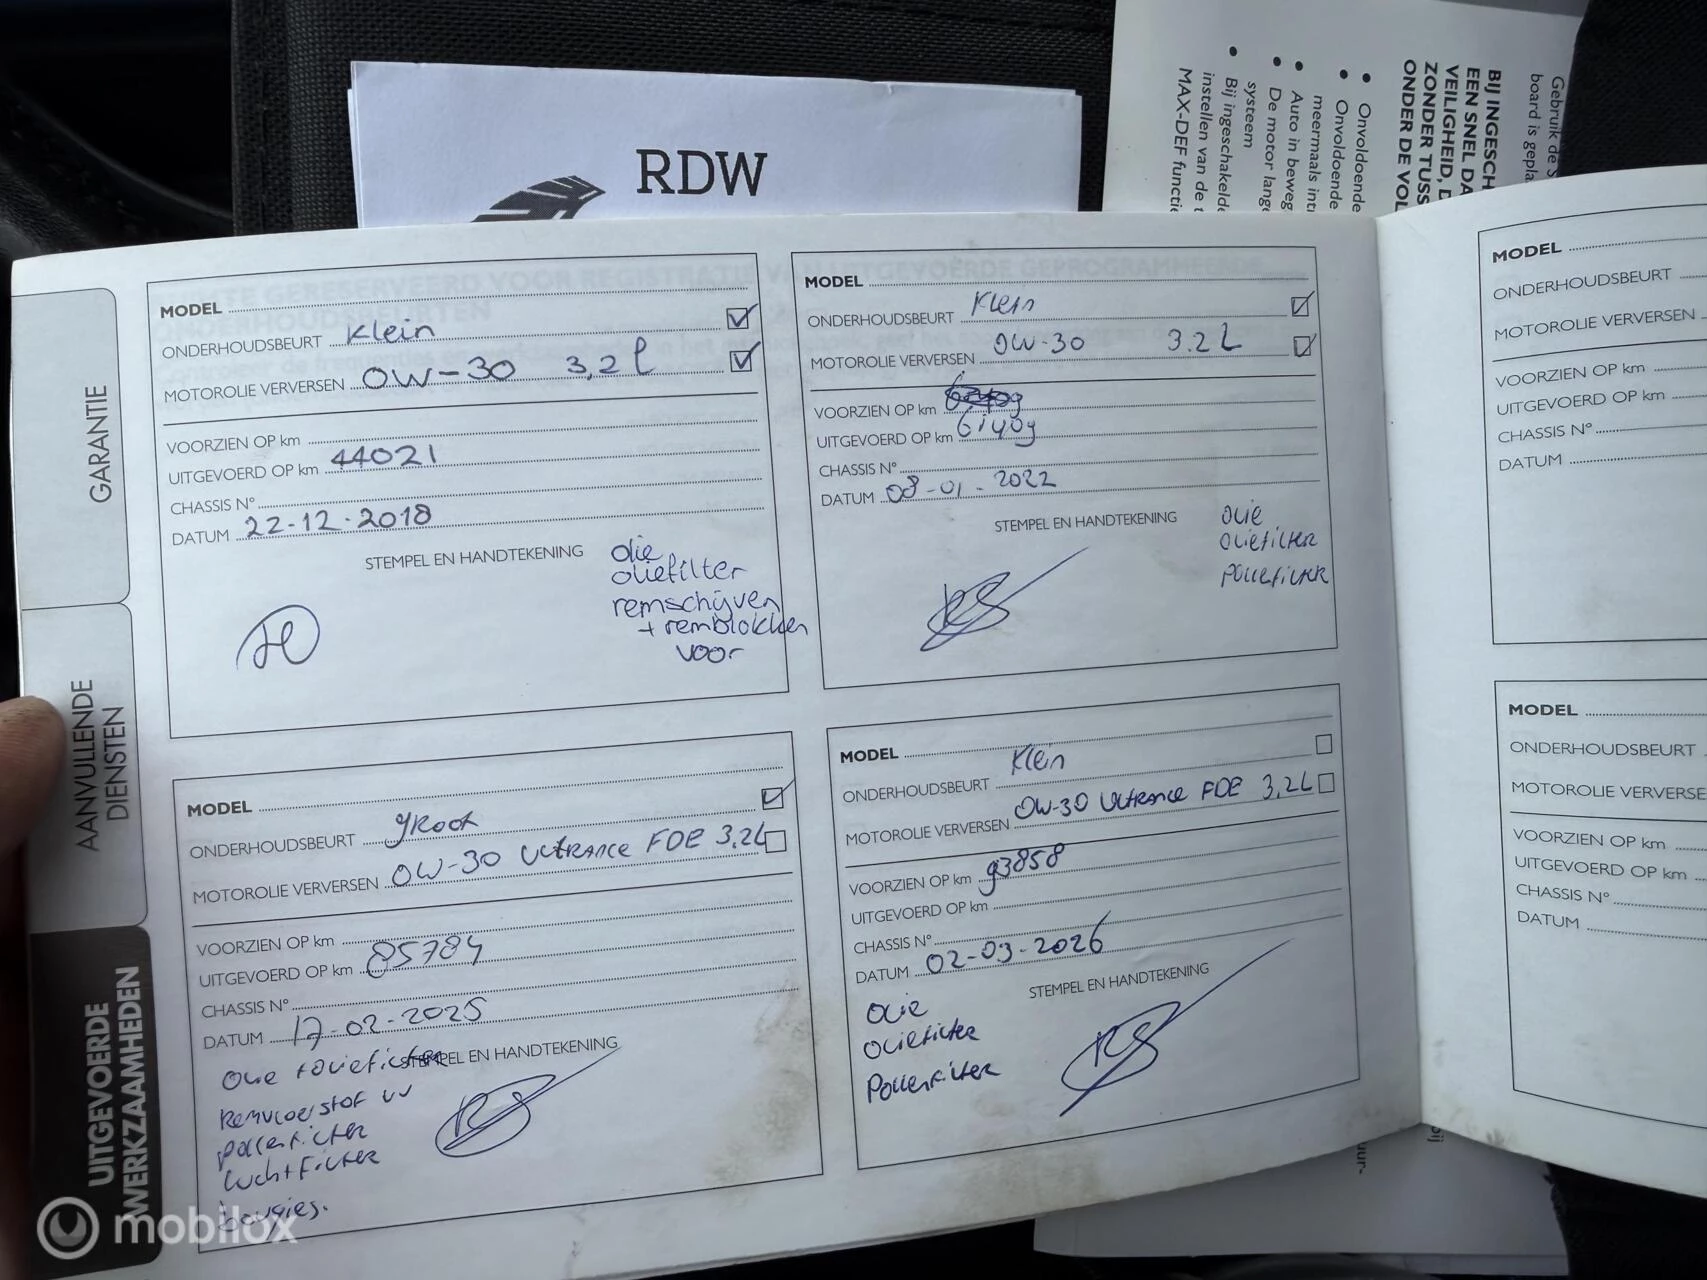 RDW
Gebruik de S
board is gepla
BIJ INGESCH
EEN SNEL DA
VEILIGHEID, D
ZONDER TUSS
ONDER DE VOL
• Onvoldoende
• Onvoldoende
meermaals int
• Auto in beweg
• De motor lange
systeem
• Bij ingeschakelde
instellen van de t
MAX-DEF functie
GARANTIE
AANVULLENDE
DIENSTEN
UITGEVOERDE
WERKZAAMHEDEN
MODEL
ONDERHOUDSBEURT Klein
MOTOROLIE VERVERSEN OW-30 3,2 l
VOORZIEN OP km
UITGEVOERD OP km 44021
CHASSIS N°
DATUM 22-12-2018
STEMPEL EN HANDTEKENING
olie
oliefilter
remschijven
+ remblokken
voor
MODEL
ONDERHOUDSBEURT Klein
MOTOROLIE VERVERSEN OW-30 3.2 L
VOORZIEN OP km
UITGEVOERD OP km 61409
CHASSIS N°
DATUM 08-01-2022
STEMPEL EN HANDTEKENING
olie
oliefilter
pollefilter
MODEL
ONDERHOUDSBEURT groot
MOTOROLIE VERVERSEN OW-30 Ultrance FDE 3,2L
VOORZIEN OP km
UITGEVOERD OP km 85784
CHASSIS N°
DATUM 17-02-2025
STEMPEL EN HANDTEKENING
Olie + oliefilter
Remvloeistof vv
pollenfilter
luchtfilter
bougies.
MODEL
ONDERHOUDSBEURT Klein
MOTOROLIE VERVERSEN OW-30 Ultrance FDE 3,2L
VOORZIEN OP km 93858
UITGEVOERD OP km
CHASSIS N°
DATUM 02-03-2026
STEMPEL EN HANDTEKENING
Olie
Oliefilter
Pollenfilter
MODEL
ONDERHOUDSBEURT
MOTOROLIE VERVERSEN
VOORZIEN OP km
UITGEVOERD OP km
CHASSIS N°
DATUM
MODEL
ONDERHOUDSBEURT
MOTOROLIE VERVERSE
VOORZIEN OP km
UITGEVOERD OP km
CHASSIS N°
DATUM
mobilox